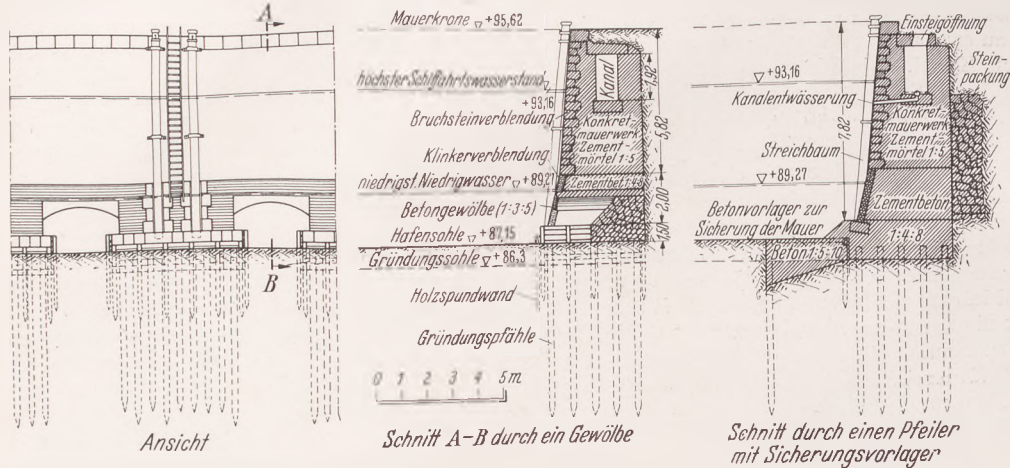 A
B
Ansicht
Mauerkrone ▽ +95,62
höchster Schiffahrtswasserstand ▽
+93,16
Bruchsteinverblendung
Klinkerverblendung
niedrigst. Niedrigwasser ▽ +89,27
Betongewölbe (1:3:5)
Hafensohle ▽ +87,15
Gründungssohle ▽ +86,3
Holzspundwand
Gründungspfähle
0 1 2 3 4 5 m
Kanal
Konkret-
mauerwerk
Zement-
mörtel 1:5
Zementbet. 1:4:8
1,92
5,82
2,00
1,50
Schnitt A-B durch ein Gewölbe
Einsteigöffnung
Stein-
packung
▽ +93,16
Kanalentwässerung
Konkret-
mauerwerk
Zement-
mörtel 1:5
7,82
Streichbaum
▽ +89,27
Betonvorlager zur
Sicherung der Mauer
Zementbeton
1:4:8
Beton 1:5:10
Schnitt durch einen Pfeiler
mit Sicherungsvorlager